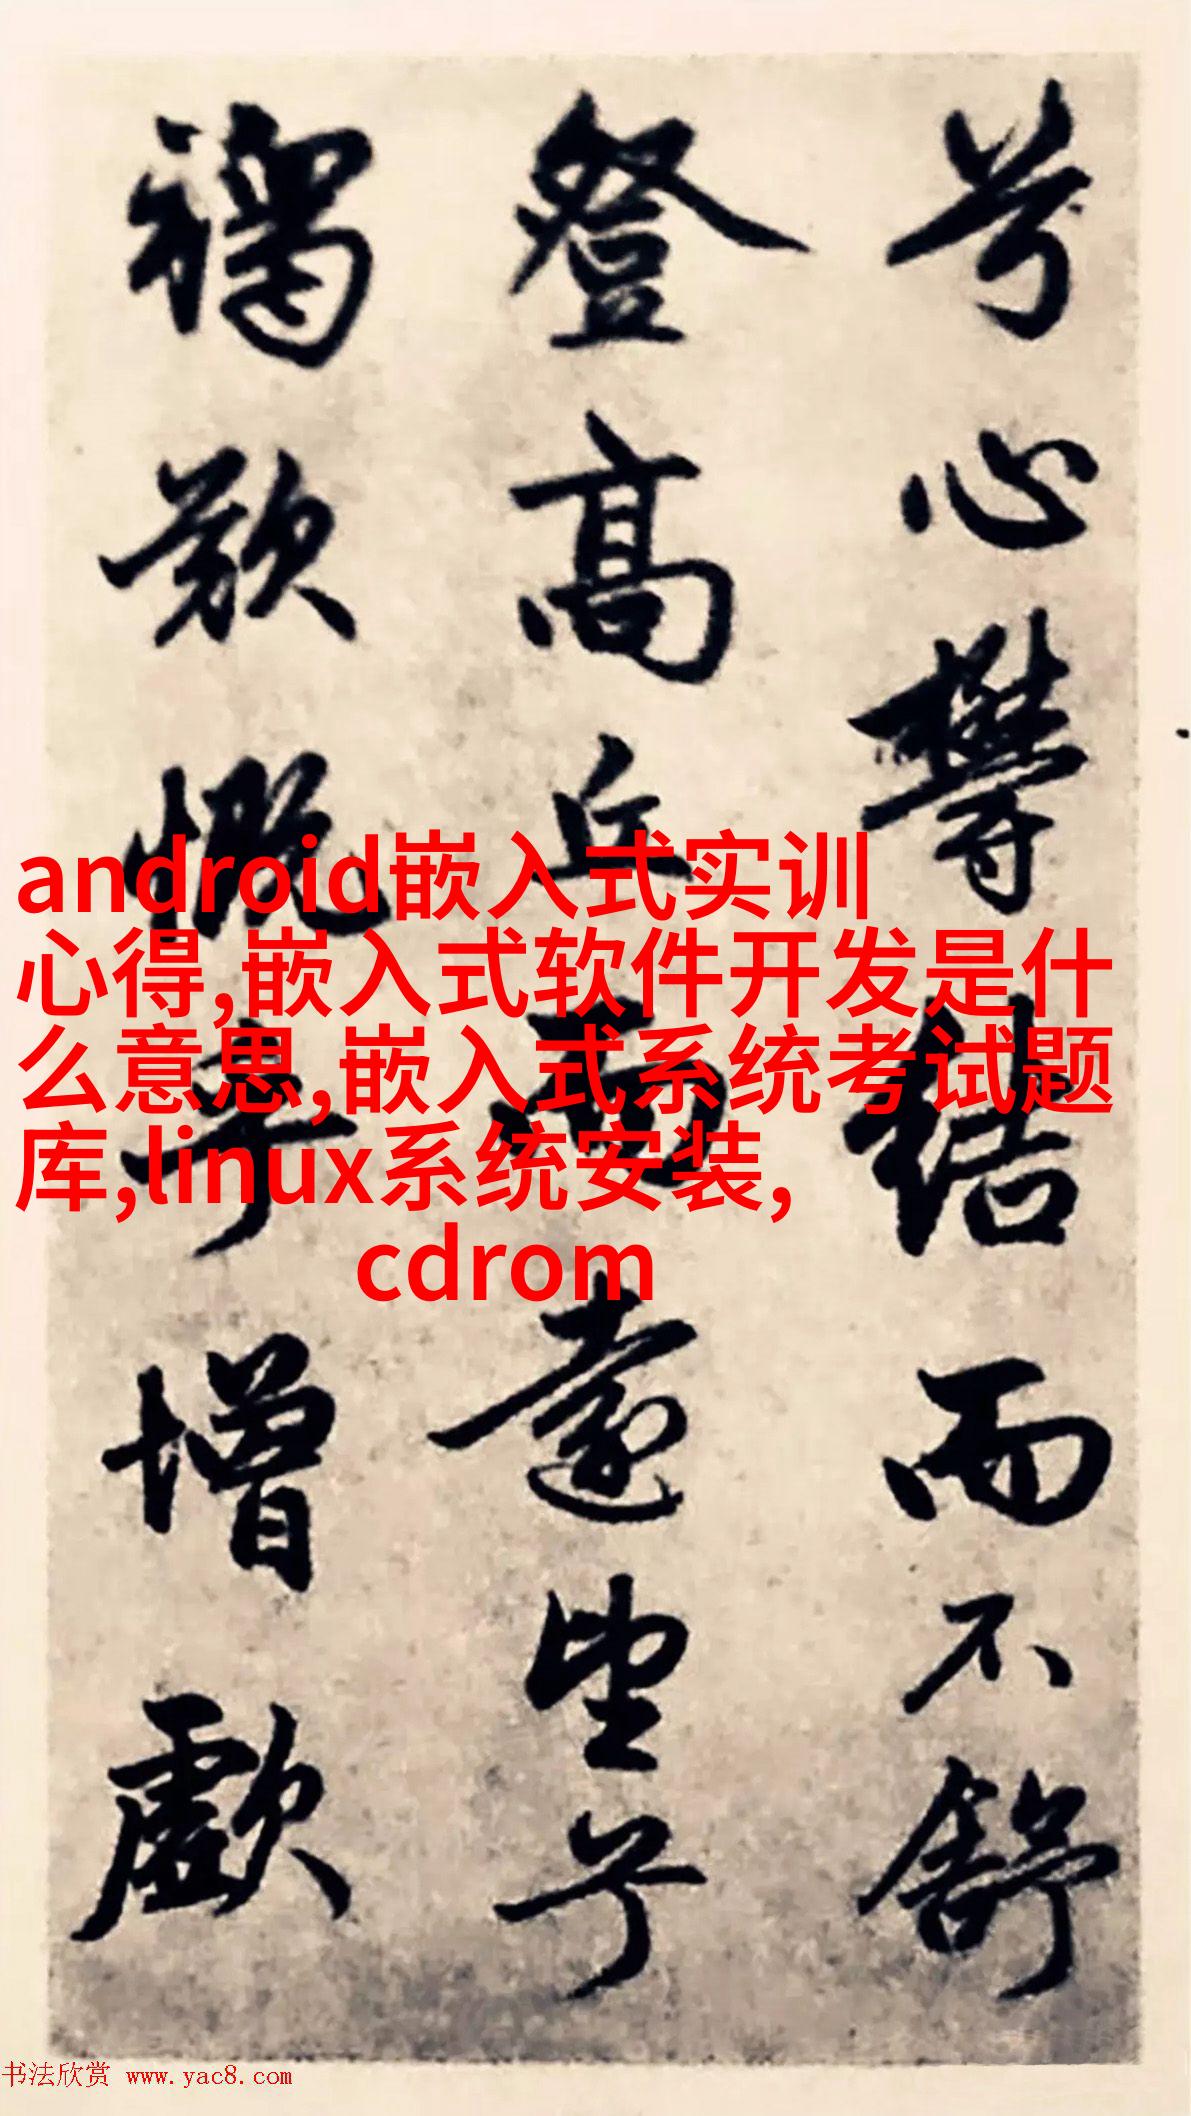 兮心欝結而不舒
登高丘而遠望兮
歎慨乎增歔
android嵌入式实训
心得,嵌入式软件开发是什
么意思,嵌入式系统考试题
库,linux系统安装,
cdrom
书法欣赏 www.yac8.com